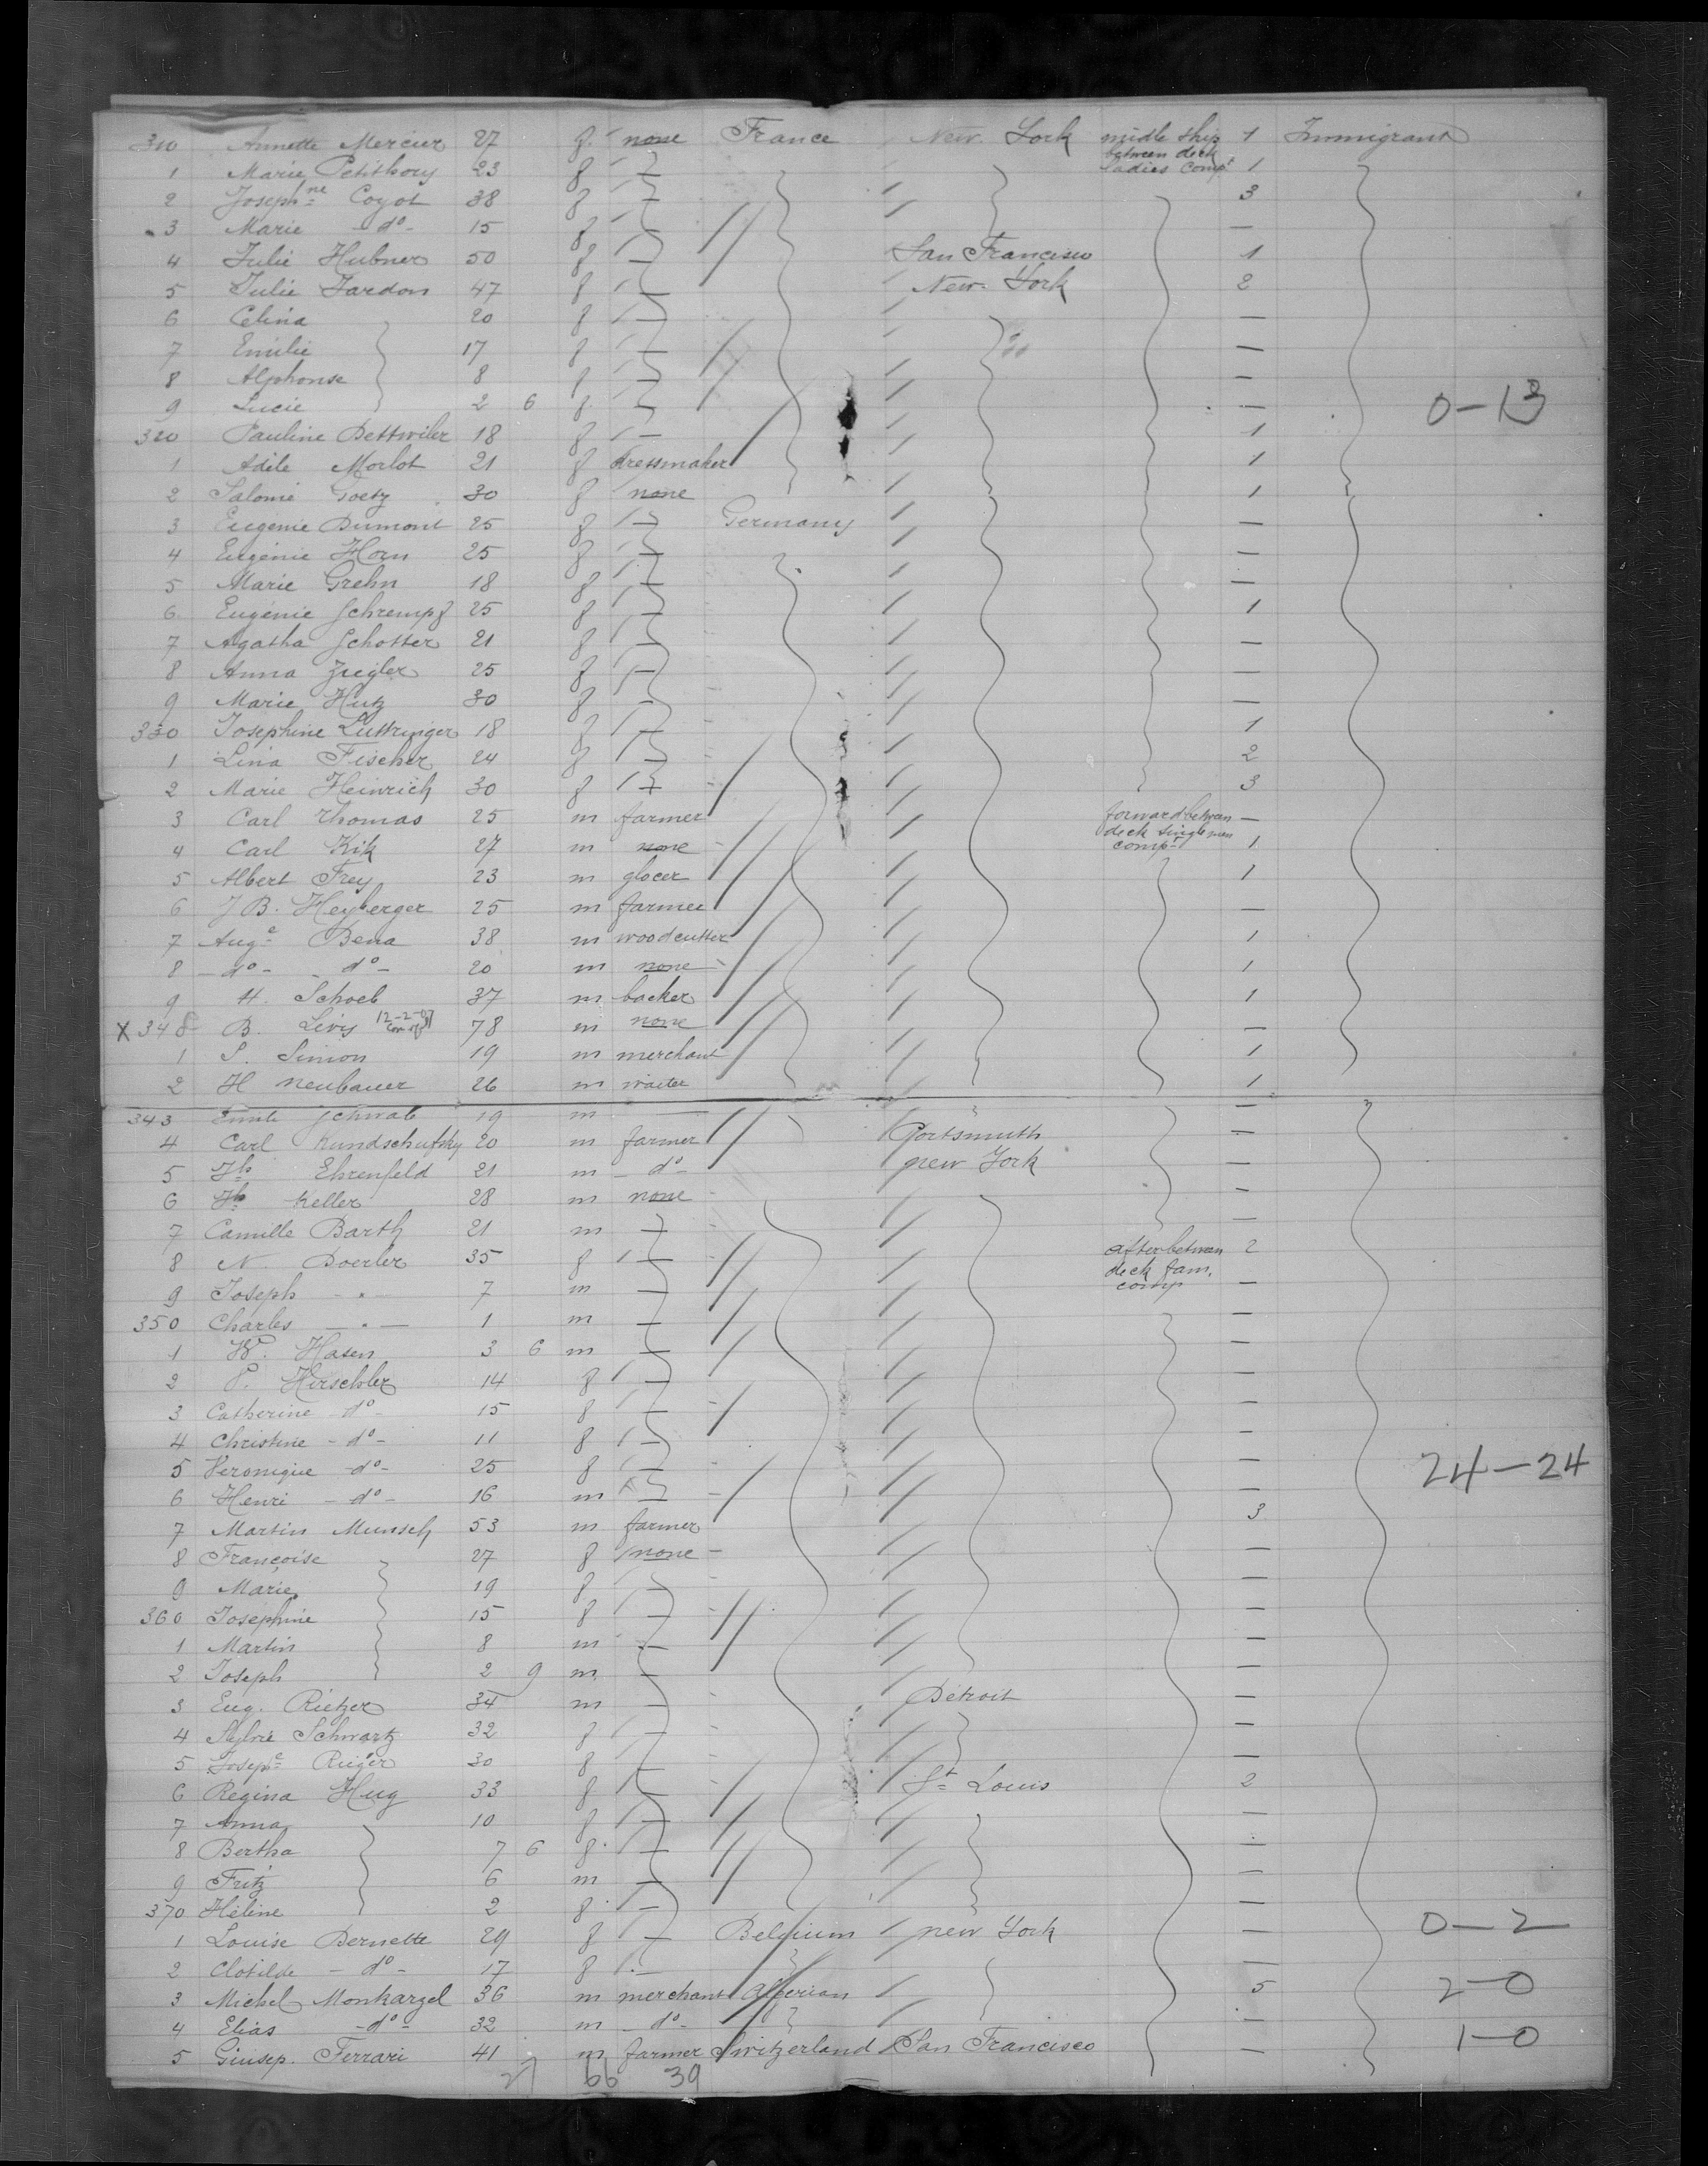 310 Annette Mercier 27 f. none France New York midle ship 1 Immigrant
between deck
1 Marie Petithory 23 f — ladies Compt 1
2 Josephne Coyot 38 f — 3
3 Marie - do - 15 f — —
4 Julie Hubner 50 f — San Francisco 1
5 Julie Jardon 47 f — New York 2
6 Celina 20 f — —
7 Emilie 17 f — —
8 Alphonse 8 f — —
9 Lucie 2 6 f. — — 0-13
320 Pauline Dettwiler 18 f — 1
1 Adèle Morlot 21 f dressmaker 1
2 Salomé Goetz 30 f none 1
3 Eugénie Dumont 25 f — Germany —
4 Eugénie Horn 25 f — —
5 Marie Grehn 18 f — —
6 Eugénie Schrempf 25 f — 1
7 Agatha Schotter 21 f — —
8 Anna Ziegler 25 f — —
9 Marie Hutz 30 f — —
330 Josephine Luttringer 18 f — 1
1 Lina Fischer 24 f — 2
2 Marie Heinrich 30 f — 3
3 Carl Thomas 25 m farmer forward between —
deck single men
4 Carl Kik 27 m none compt 1
5 Albert Frey 23 m glocer 1
6 J B. Heyberger 25 m farmer —
7 Auge Bena 38 m woodcutter 1
8 - do - - do - 20 m none 1
9 H. Schoeb 37 m backer 1
X 348 B. Levy 12-2-07 78 m none —
1 S. Simon 19 m merchant 1
2 H neubauer 26 m waiter 1
343 Emile Schwab 19 m — —
4 Carl Kundschufsky 20 m farmer Portsmuth —
5 Jh Ehrenfeld 21 m - do - new York —
6 Jh Keller 28 m none —
7 Camille Barth 21 m — —
8 N. Doerler 35 f — after between 2
deck fam.
9 Joseph - " - 7 m — comp —
350 Charles — " — 1 m — —
1 W. Hasen 3 6 m — —
2 P. Hirschler 14 f — —
3 Catherine - do - 15 f — —
4 Christine - do - 11 f — —
5 Veronique - do - 25 f — — 24-24
6 Henri - do - 16 m — —
7 Martin Munsch 53 m farmer 3
8 Françoise 27 f none —
9 Marie 19 f — —
360 Josephine 15 f — —
1 Martin 8 m — —
2 Joseph 2 9 m — —
3 Eug. Rietzer 34 m — Détroit —
4 Sylvie Schwartz 32 f — —
5 Josephe Rieger 30 f — —
6 Regina Hug 33 f — St Louis 2
7 Anna 10 f — —
8 Bertha 7 6 f. — —
9 Fritz 6 m — —
370 Hélène 2 f. — —
1 Louise Bernette 29 f — Belgium new York — 0-2
2 Clotilde - do - 17 f — —
3 Michel Monkarzel 36 m merchant Algerian 5 2-0
4 Elias - do - 32 m - do - —
5 Giusep. Ferrari 41 m farmer Switzerland San Francisco — 1-0
27 66 39